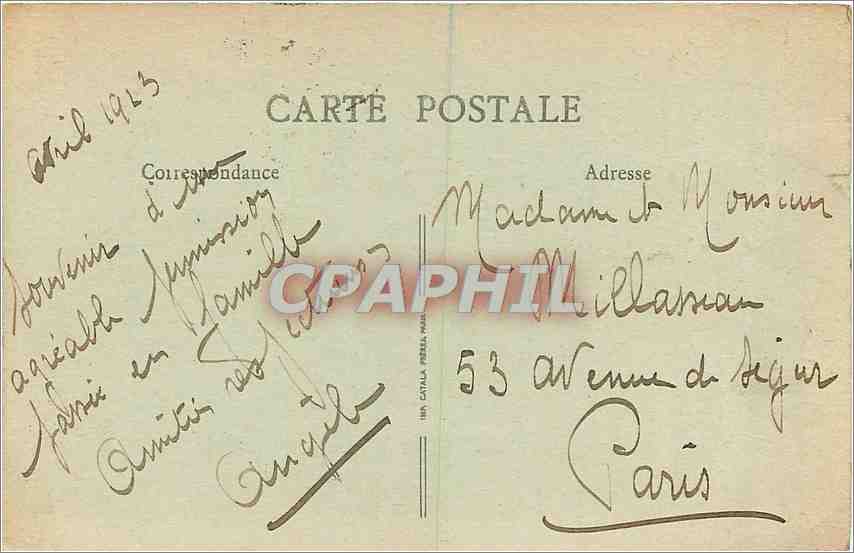 CARTE POSTALE
Correspondance
Adresse
avril 1923
Souvenir d'une
agréable
passée en famille
Amitiés
Angèle
Madame et Monsieur
Millasseau
53 avenue de Ségur
Paris
IMP. CATALA FRÈRES, PARIS
CPAPHIL